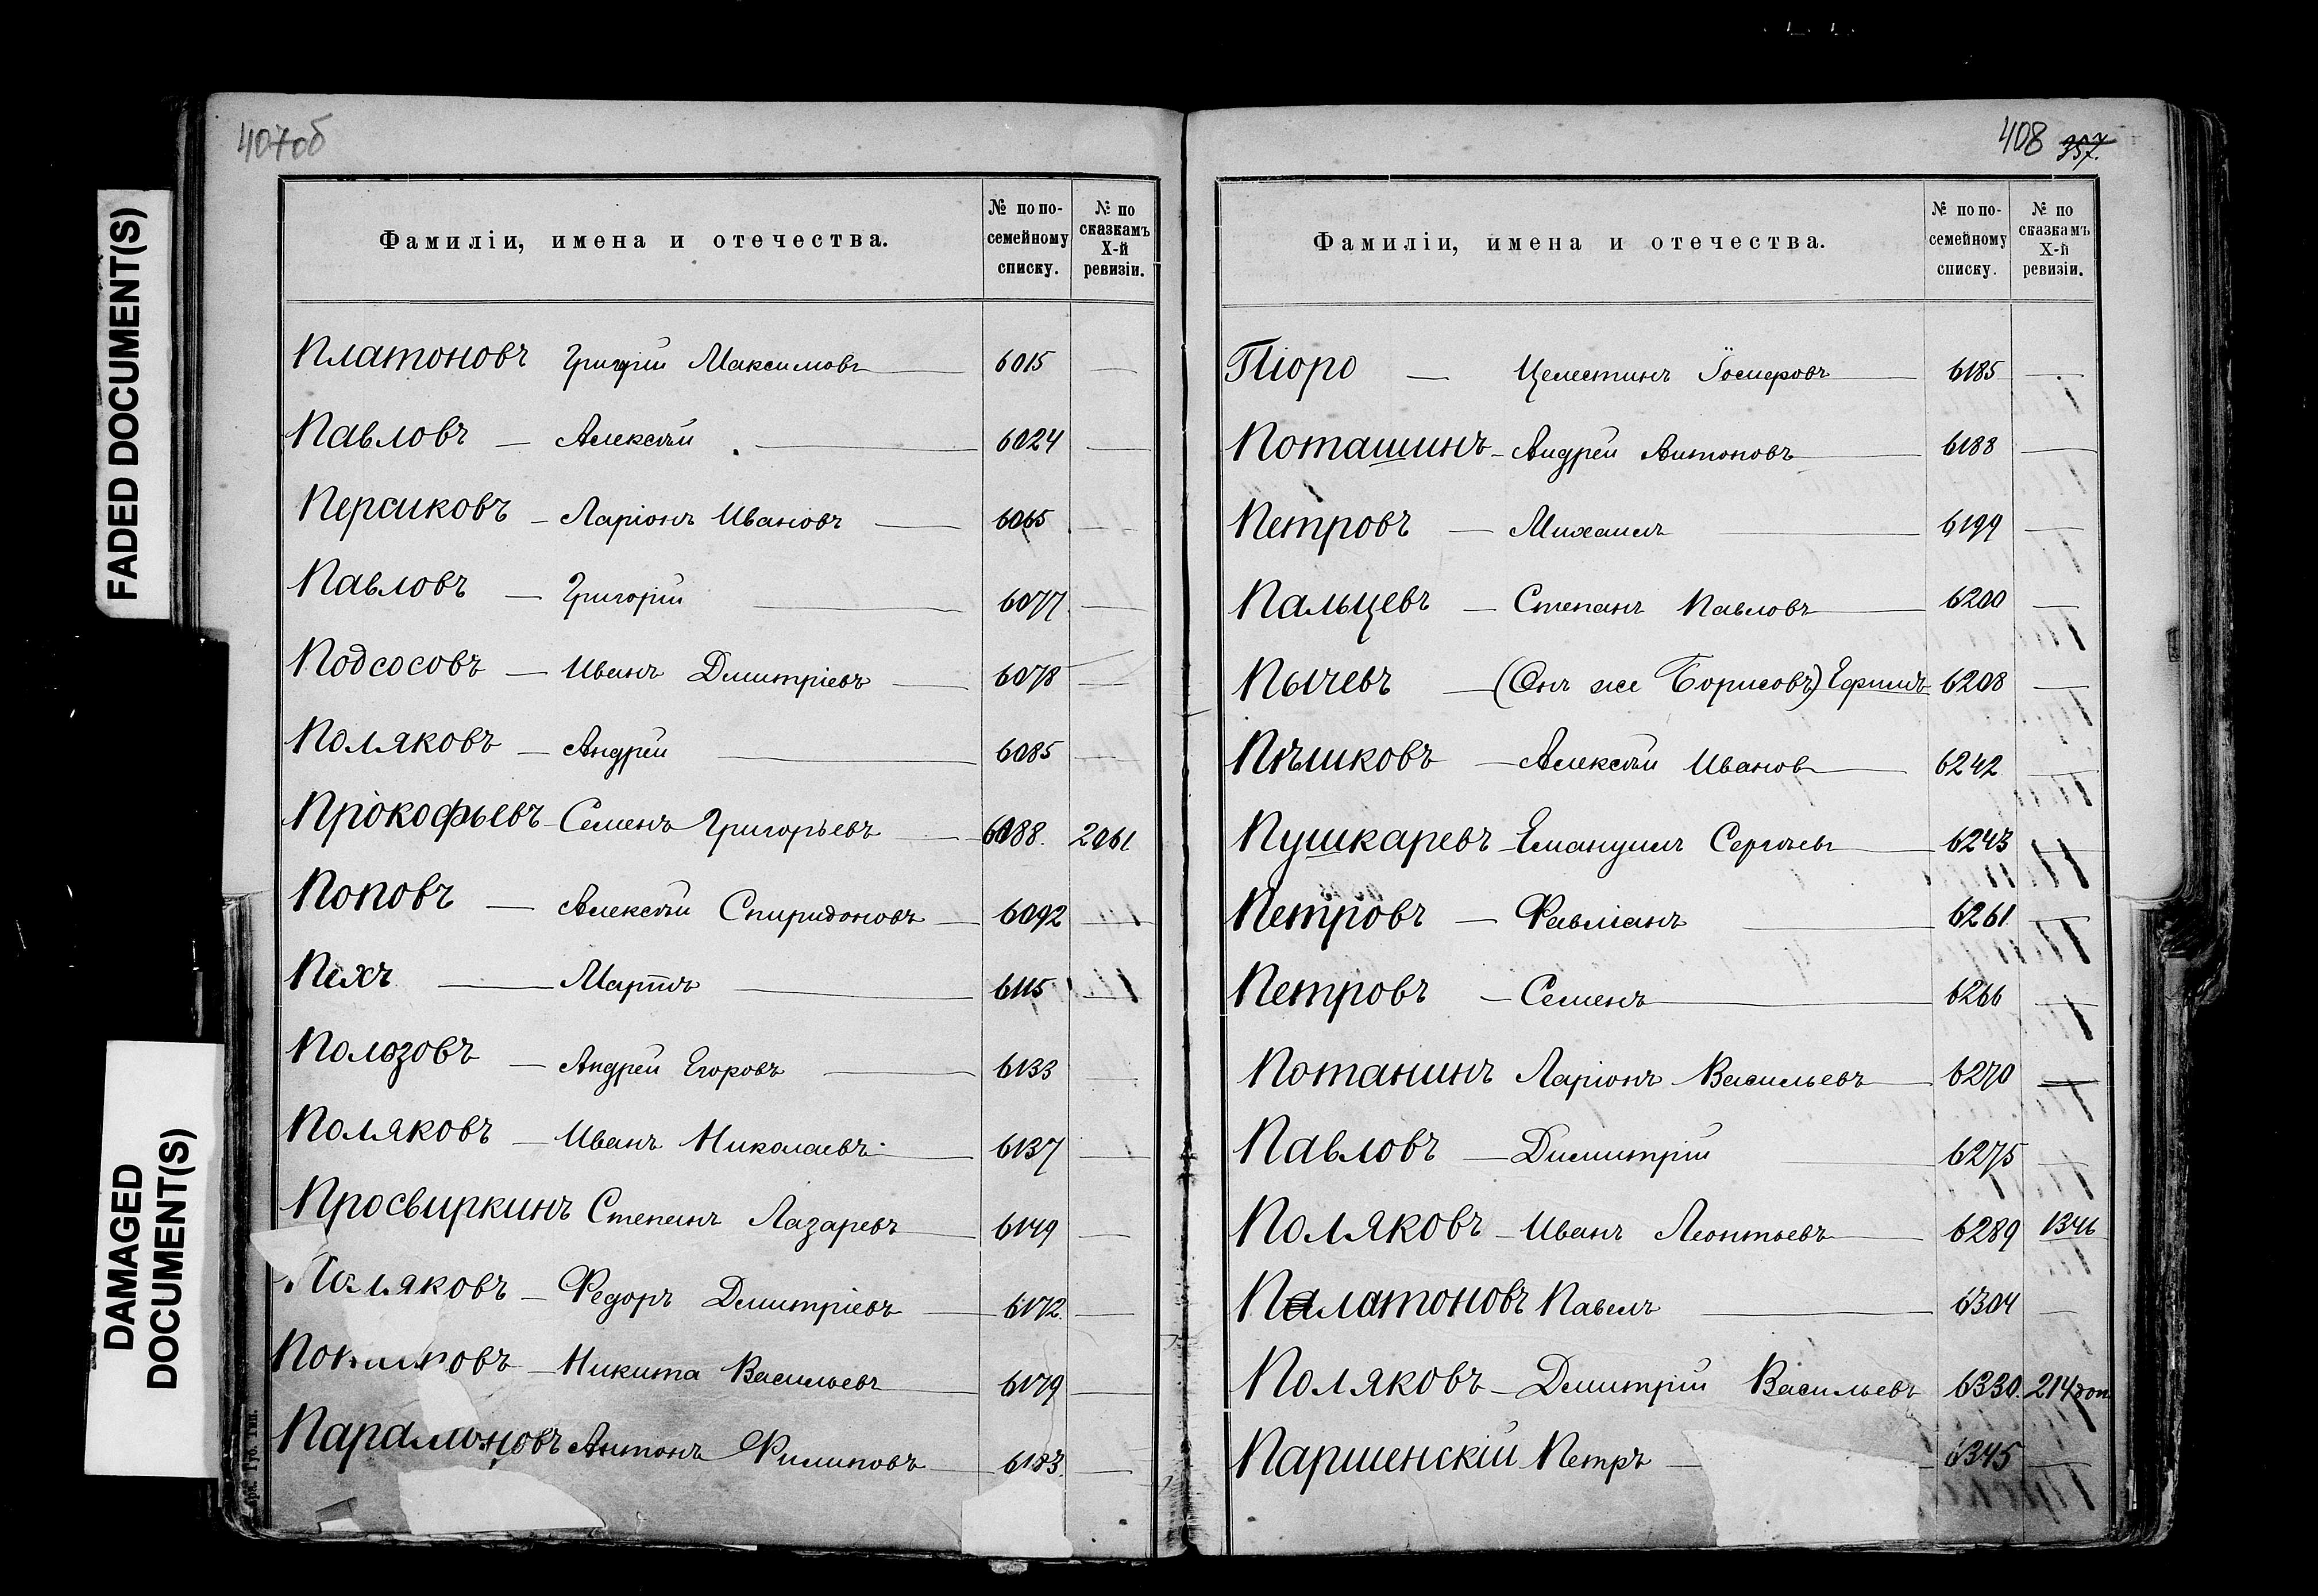 FADED DOCUMENT(S)
DAMAGED
DOCUMENT(S)
407об
Фамиліи, имена и отечества.
№ по по-
семейному
списку.
№ по
сказкамъ
X-й
ревизіи.
Платоновъ Григорій Максимовъ 6015 —
Павловъ — Алексѣй — 6024 —
Персиковъ — Ларіонъ Ивановъ — 6065 —
Павловъ — Григорій — 6077 —
Подсосовъ — Иванъ Дмитріевъ — 6078 —
Поляковъ — Андрей — 6085 —
Прокофьевъ — Семенъ Григорьевъ — 6088. 2061
Поповъ — Алексѣй Спиридоновъ — 6092 —
Піхъ — Мартинъ — 6115 —
Ползовъ — Андрей Егоровъ — 6133 —
Поляковъ — Иванъ Николаевъ — 6137 —
Просвиркинъ Степанъ Лазаревъ — 6149 —
Поляковъ — Федоръ Дмитріевъ — 6172 —
Никита Васильевъ — 6179 —
Парамоновъ Антонъ Филиповъ — 6183 —
Губ. Тип.
408 357.
Фамиліи, имена и отечества.
№ по по-
семейному
списку.
№ по
сказкамъ
X-й
ревизіи.
Піоро — Целестинъ — 6185 —
Поташинъ — Андрей Антоновъ — 6188 —
Петровъ — Михаилъ — 6199 —
Пальцевъ — Степанъ Павловъ — 6200 —
Пычевъ — (Онъ же Борисовъ) Ефимъ 6208 —
Пѣшковъ — Алексѣй Ивановъ — 6242 —
Пушкаревъ — Емануилъ Сергѣевъ — 6243 —
Петровъ — Фавміанъ — 6261 —
Петровъ — Семенъ — 6266 —
Потанинъ Ларіонъ Васильевъ — 6270 —
Павловъ — Димитрій — 6275 —
Поляковъ — Иванъ Леонтьевъ — 6289 1346
Палатоновъ Павелъ — 6304 —
Поляковъ — Дмитрій Васильевъ 6330. 214 доп
Паршенскій Петръ — 6345 —